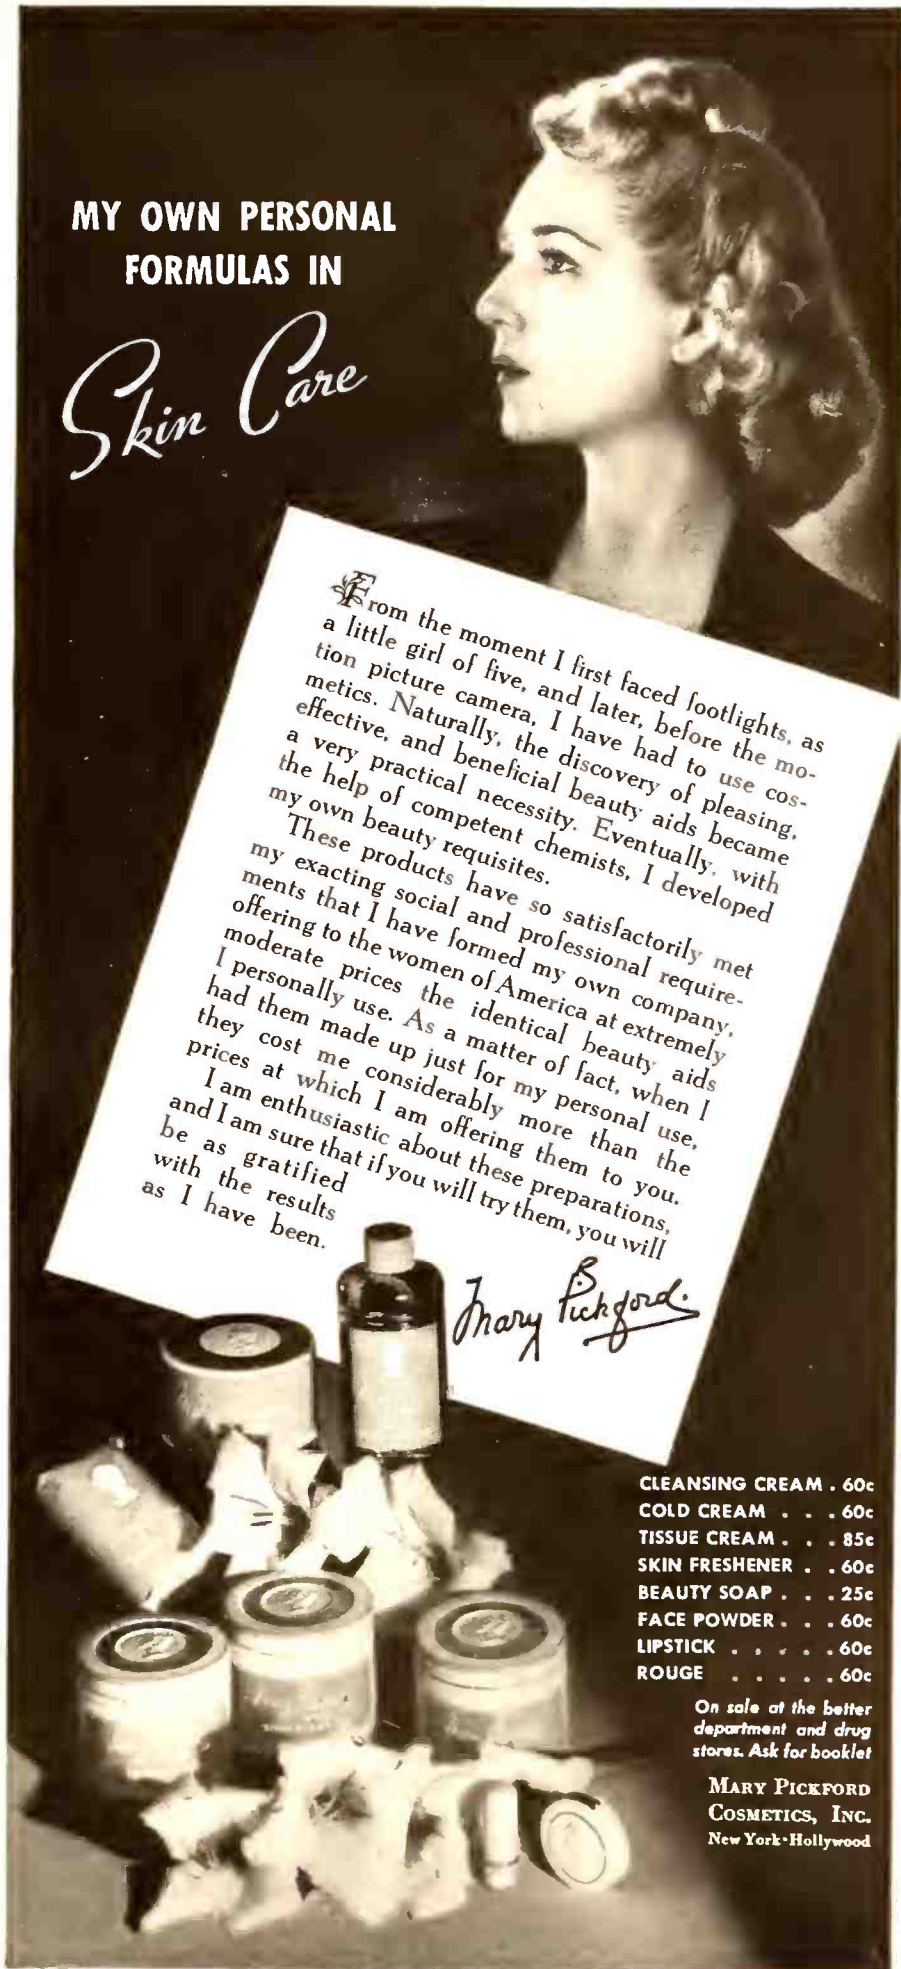 MY OWN PERSONAL
FORMULAS IN
Skin Care
From the moment I first faced footlights, as
a little girl of five, and later, before the mo-
tion picture camera, I have had to use cos-
metics. Naturally, the discovery of pleasing,
effective, and beneficial beauty aids became
a very practical necessity. Eventually, with
the help of competent chemists, I developed
my own beauty requisites.
These products have so satisfactorily met
my exacting social and professional require-
ments that I have formed my own company,
offering to the women of America at extremely
moderate prices the identical beauty aids
I personally use. As a matter of fact, when I
had them made up just for my personal use,
they cost me considerably more than the
prices at which I am offering them to you.
I am enthusiastic about these preparations,
and I am sure that if you will try them, you will
be as gratified
with the results
as I have been.
Mary B. Pickford.
CLEANSING CREAM . 60c
COLD CREAM . . . 60c
TISSUE CREAM . . . 85c
SKIN FRESHENER . . 60c
BEAUTY SOAP . . . 25c
FACE POWDER . . . 60c
LIPSTICK . . . . . 60c
ROUGE . . . . . 60c
On sale at the better
department and drug
stores. Ask for booklet
MARY PICKFORD
COSMETICS, INC.
New York·Hollywood